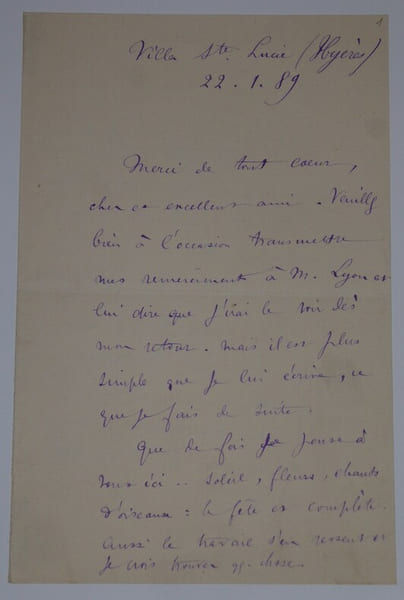 1
Villa Ste Lucie (Hyères)
22 . 1 . 89
Merci de tout coeur,
cher et excellent ami. Veuillez
bien à l'occasion transmettre
mes remerciements à M. Lyon et
lui dire que j'irai le voir dès
mon retour. Mais il est plus
simple que je lui écrive, ce
que je fais de suite.
Que de fois je pense à
vous ici .. Soleil, fleurs, chants
d'oiseaux : la fête est complète.
Aussi le travail s'en ressent et
je crois trouver qq. chose.